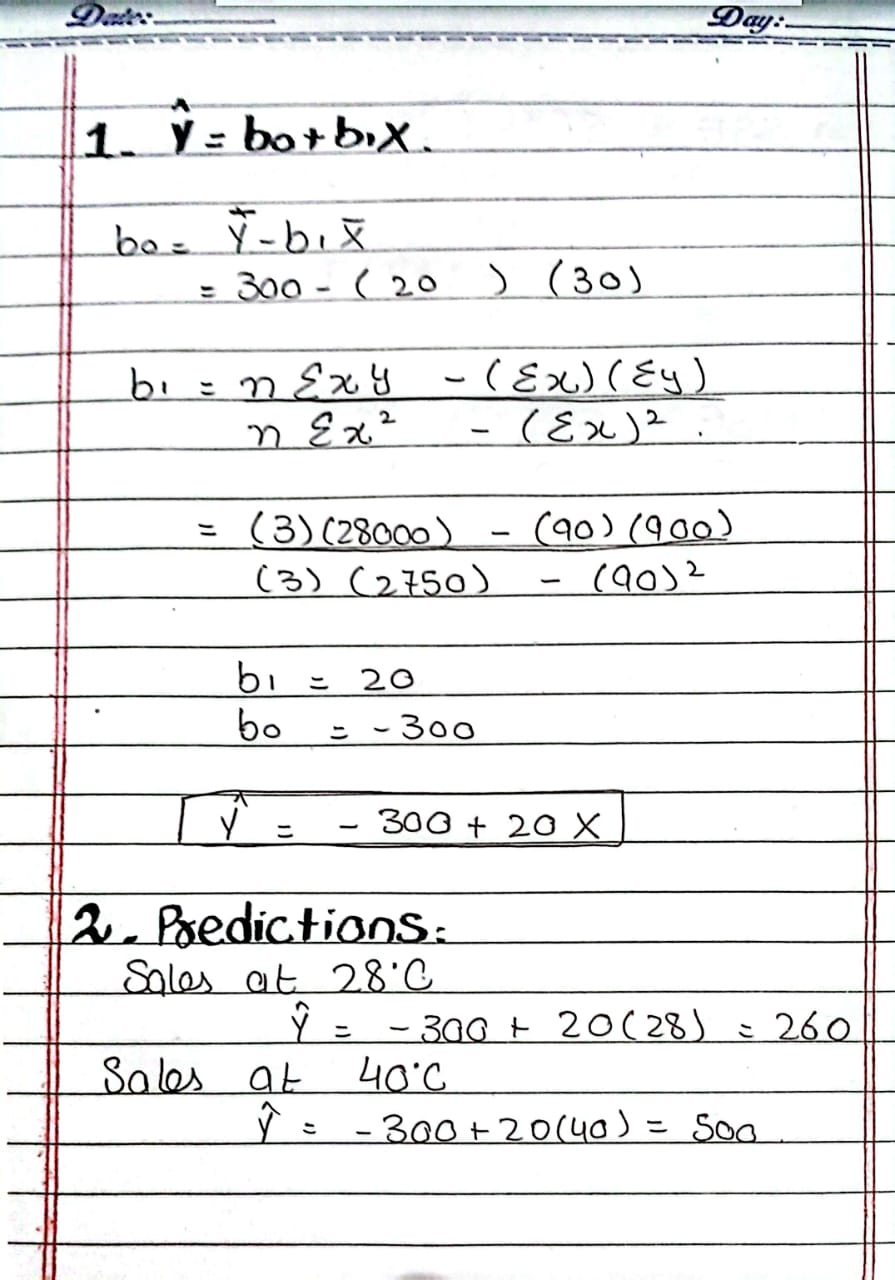 Date: Day:
1. Ŷ = b0 + b1X.
b0 = Ȳ - b1 X̄
= 300 - ( 20 ) (30)
b1 = n Σxy - (Σx)(Σy)
n Σx² - (Σx)² .
= (3)(28000) - (90)(900)
(3) (2750) - (90)²
b1 = 20
b0 = -300
Ŷ = - 300 + 20 X
2. Predictions:
Sales at 28°C
Ŷ = -300 + 20(28) = 260
Sales at 40°C
Ŷ = -300 + 20(40) = 500.